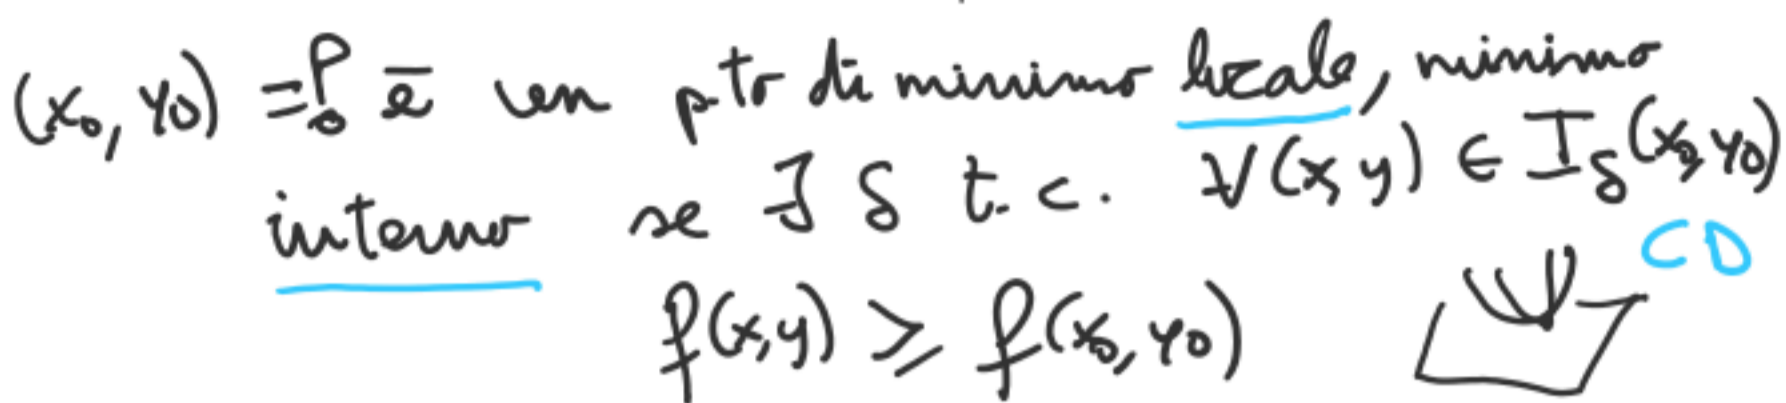 (x₀, y₀) = P₀ è un p.to di minimo locale, minimo
interno se ∃ δ t.c. ∀(x, y) ∈ I_δ(x₀, y₀)
⊂ D
f(x,y) ≥ f(x₀, y₀)